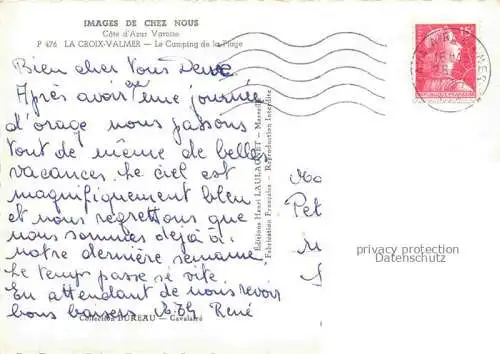 IMAGES DE CHEZ NOUS
Côte d'Azur Varoise
P 476 LA CROIX-VALMER — Le Camping de la Plage
15F
Bien cher Vous Deux
Après avoir eu une journée
d'orage nous passons
tout de même de belles
vacances. Le ciel est
magnifiquement bleu
et nous regrettons que
nous sommes déjà à
notre dernière semaine
Le temps passe si vite.
En attendant de nous revoir
bons baisers René
Editions Henri LAUGAGNET — Marseille
Fabrication Française - Reproduction Interdite
Pet
privacy protection
Datenschutz
Collection BUREAU — Cavalaire